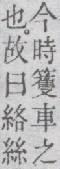 今時籆車之
也。故曰絡絲